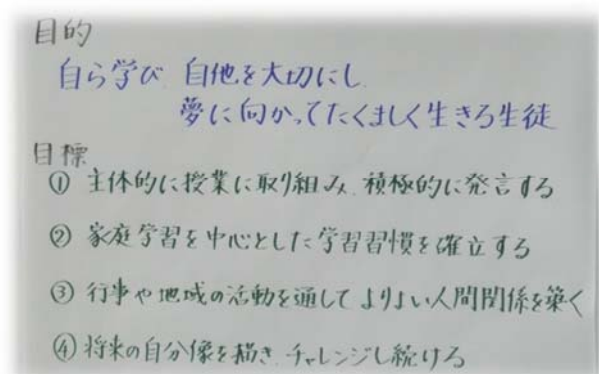 目的
自ら学び 自他を大切にし
夢に向かってたくましく生きる生徒
目標
① 主体的に授業に取り組み、積極的に発言する
② 家庭学習を中心とした学習習慣を確立する
③ 行事や地域の活動を通して よりよい人間関係を築く
④ 将来の自分像を描き、チャレンジし続ける